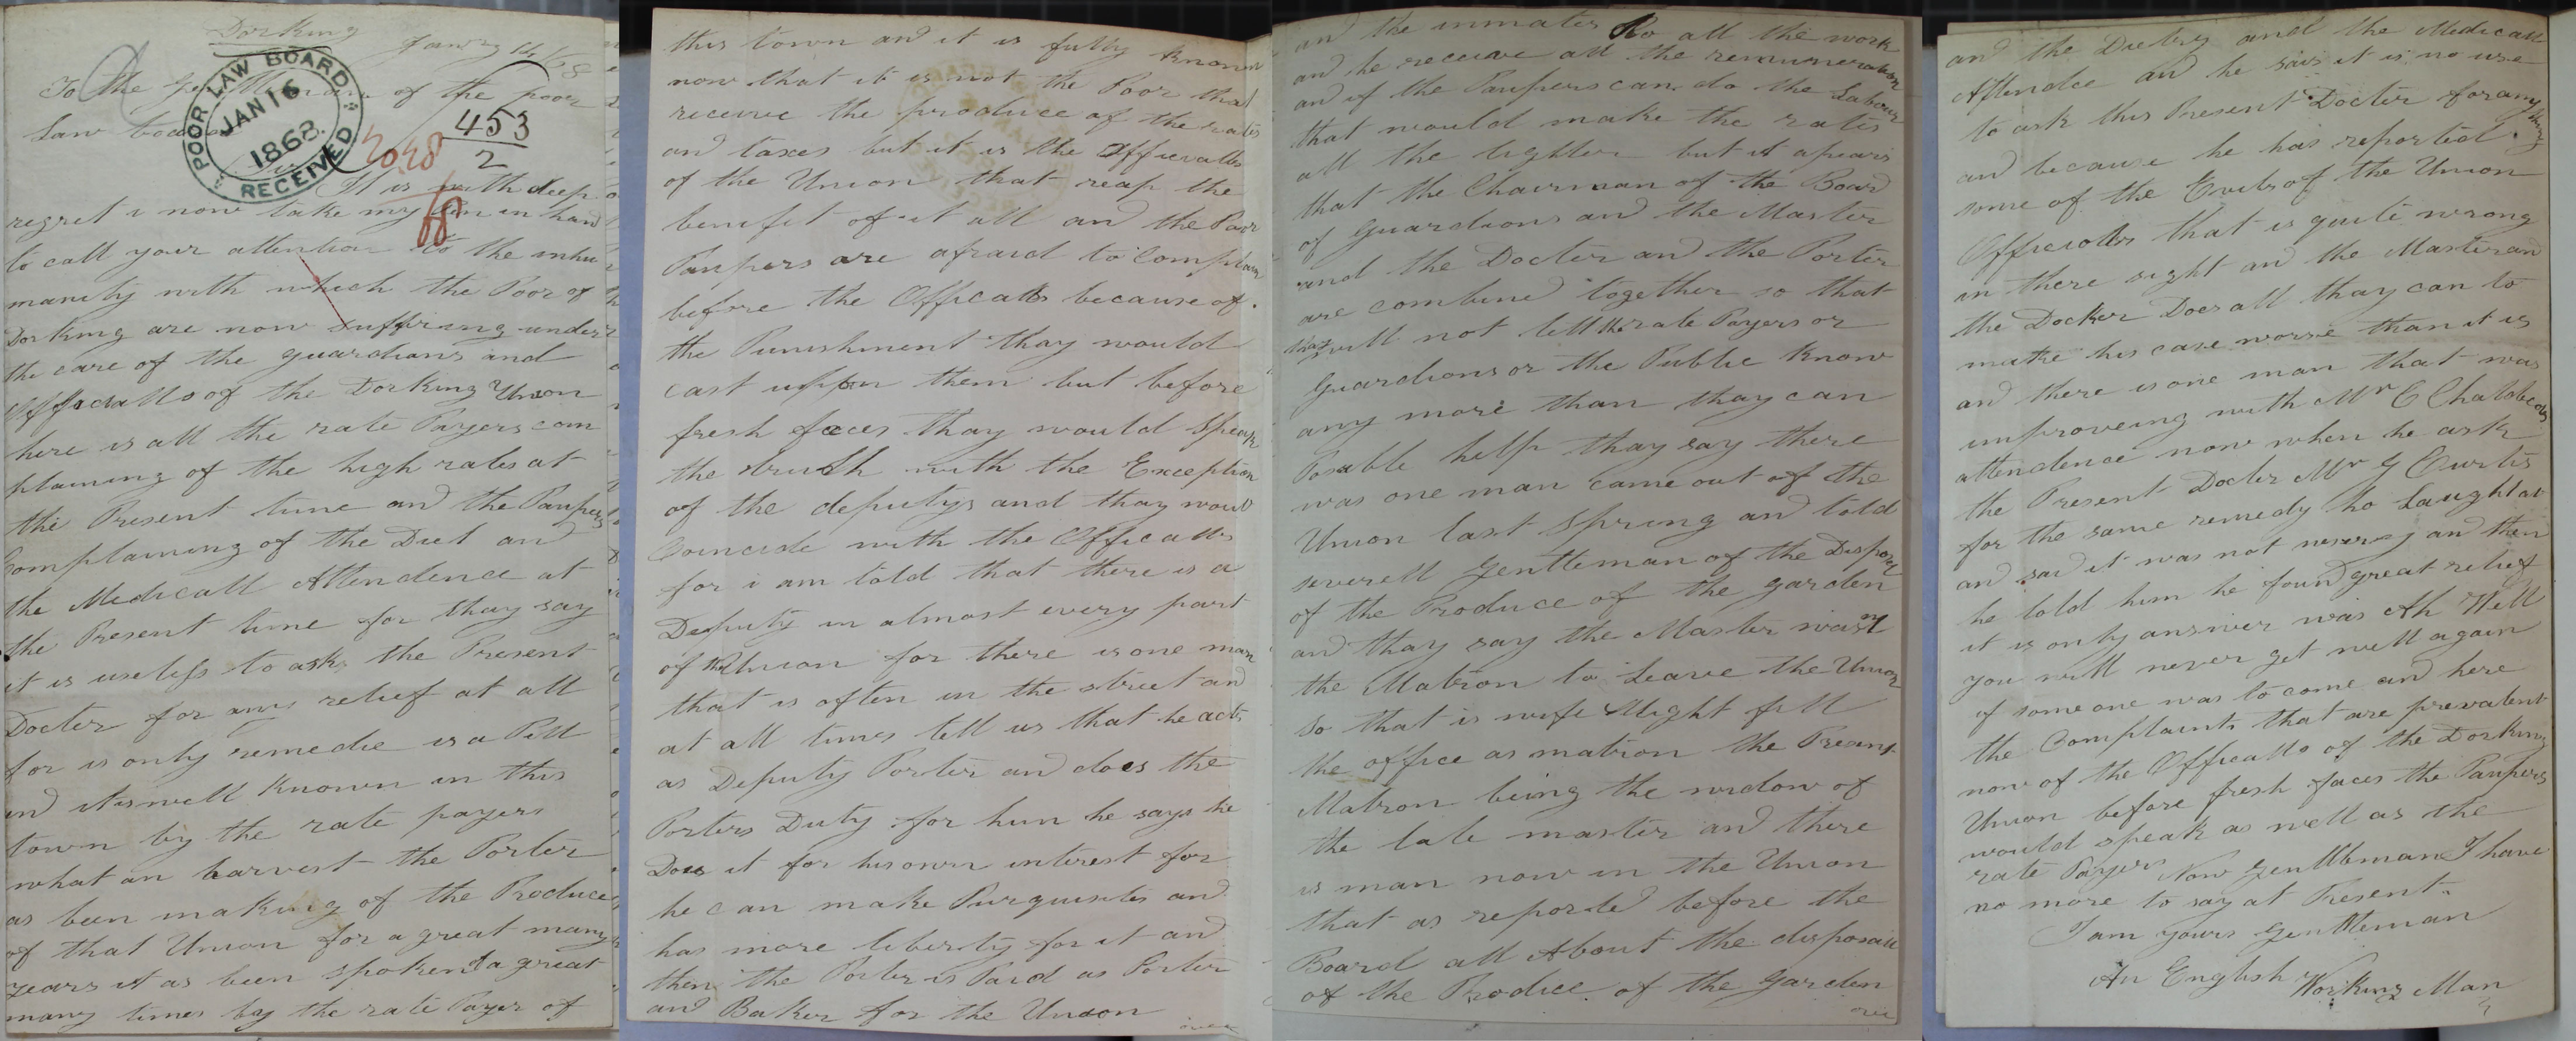 Dorking
Jan[?]y 14/68
To the Gentlemen of the poor
Law board
POOR LAW BOARD
JAN 16
1868
RECEIVED
2028
68
453
2
It is with deep
regret i now take my pen in hand
to call your attention to the inhu
manity with which the Poor of
Dorking are now suffring under
the care of the guardians and
Officialls of the Dorking Union
here is all the rate Payers com
plaining of the high rates at
the Present time and the Paupers
Complaining of the Diet and
the Medicall Attendence at
the Present time for thay say
it is useless to ask the Present
Docter for any relief at all
for is only remedie is a Pill
and it is well Known in this
town by the rate payers
what an harvest the Porter
as been making of the Produce
of that Union for a great many
years it as been spoken to a great
many times by the rate Payer of
this town and it is fully known
now that it is not the Poor that
receive the produce of the rates
and taxes but it is the Officialls
of the Union that reap the
benifit of it all an the Poor
Paupers are afraid to Complain
before the Officalls because of
the Punishment thay would
cast uppon them but before
fresh faces thay would Speak
the truth with the Exception
of the deputys and thay would
Coincide with the Officalls
for i am told that there is a
Deputy in almost every part
of the Union for there is one man
that is often in the street and
at all times tell us that he acts
as Deputy Porter and does the
Porters Duty for him he says he
Does it for his own interest for
he can make Purquisites and
has more liberty for it and
then the Porter is Paid as Porter
and Baker for the Union
over
and the inmates Do all the work
and he receive all the remuneration
and if the Paupers can do the Labour
that would make the rates
all the lighter but it apears
that the Chairman of the Board
of Guardians and the Master
and the Docter and the Porter
are combined together so that
thay will not lett the rate Payers or
Guardians or the Public Know
any more than thay can
Posable help thay say there
was one man came out of the
Union last Spring and told
severell gentleman of the Disposal
of the Produce of the garden
and thay say the Master want
the Matron to Leave the Union
so that is wife Might fill
the office as matron the Present
Matron being the widow of
the late master and there
is man now in the Union
that as reported before the
Board all About the disposall
of the Produce of the Garden
over
and the Dietry and the Medicall
Attendce and he sais it is no use
to ask this Present Docter for any thing
and because he has reported
some of the Evils of the Union
Officialls that is quite wrong
in there sight and the Master and
the Docker Does all thay can to
make his case worse than it is
and there is one man that was
improveing with Mr C Chaldecots
attendence now when he ask
the Present Docter Mr G Curtis
for the same remedy he Laught at
and said it was not nessery and then
he told him he found great relief
it is only answer was Ah Well
you will never get well again
if some one was to come and here
the Complaints that are prevalent
now of the Officalls of the Dorking
Union before fresh faces the Paupers
would speak as well as the
rate Payers Now Gentlleman I have
no more to say at Present
I am yours Gentleman
An English Working Man